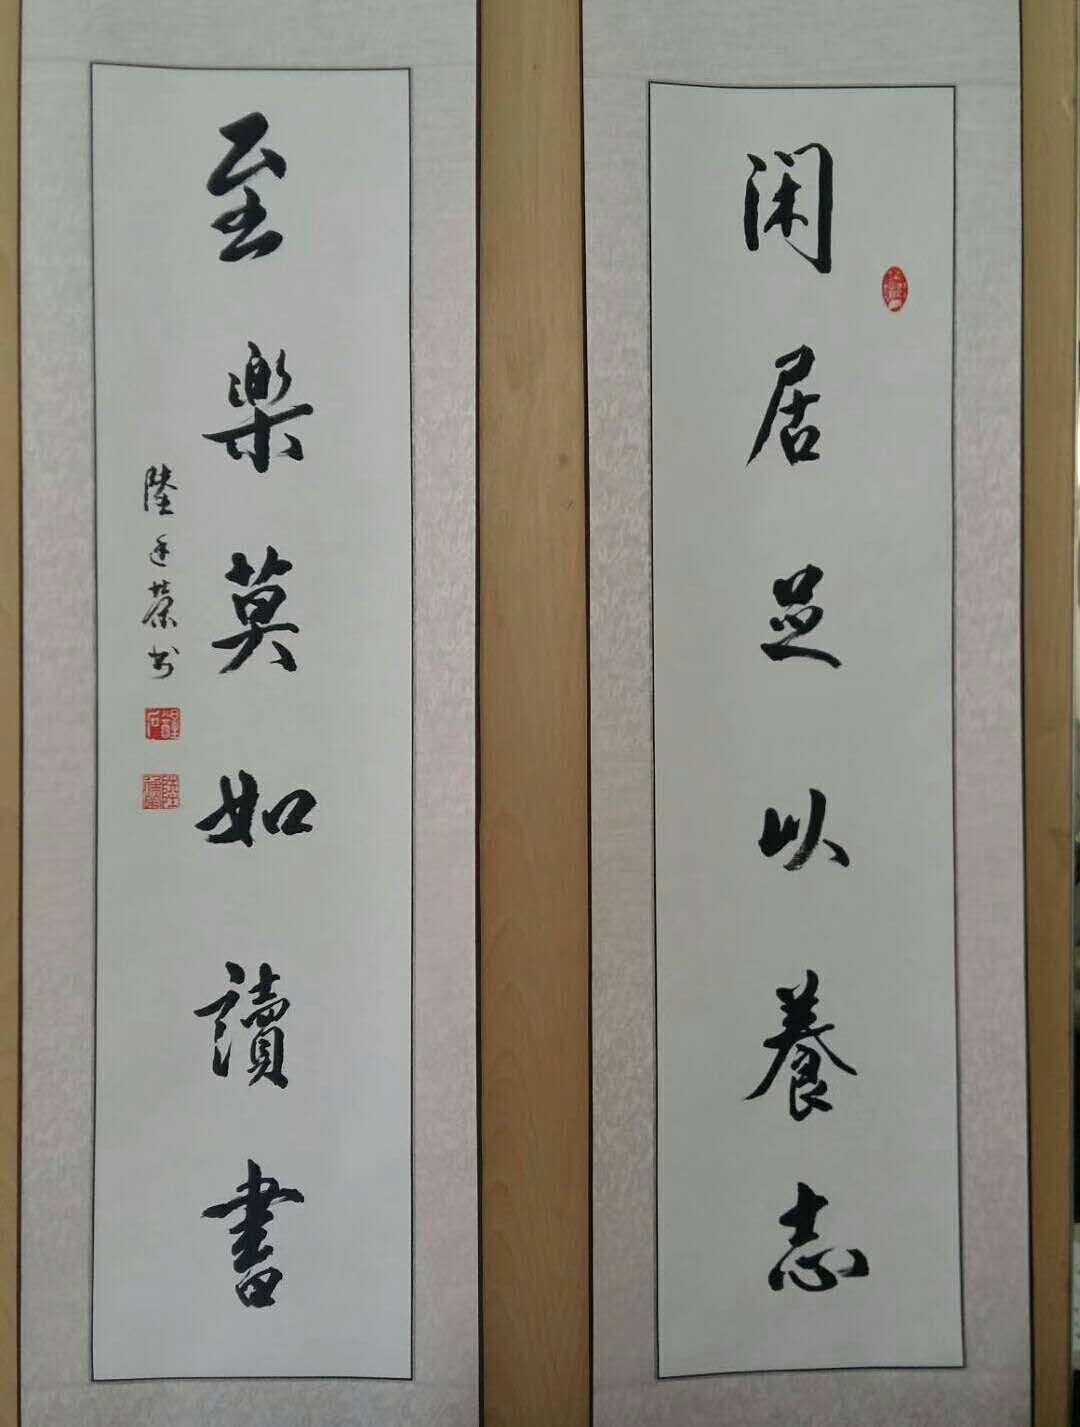 闲居足以養志
至樂莫如讀書
陸廷榮书